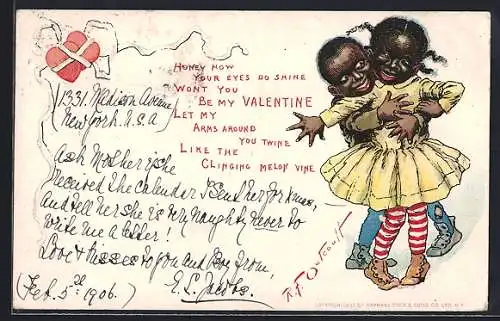 HONEY HOW
YOUR EYES DO SHINE
WONT YOU
BE MY VALENTINE
LET MY
ARMS AROUND
YOU TWINE
LIKE THE
CLINGING MELON VINE
1331. Madison Avenue
New York. U.S.A
Ask Mother if she
received the calendar I sent her for Xmas,
And tell her she is very naughty never to
write me a letter!
Love & kisses to you and Boy from,
E. L. Jacobs.
(Feb. 5th 1906.)
R.F. Outcault